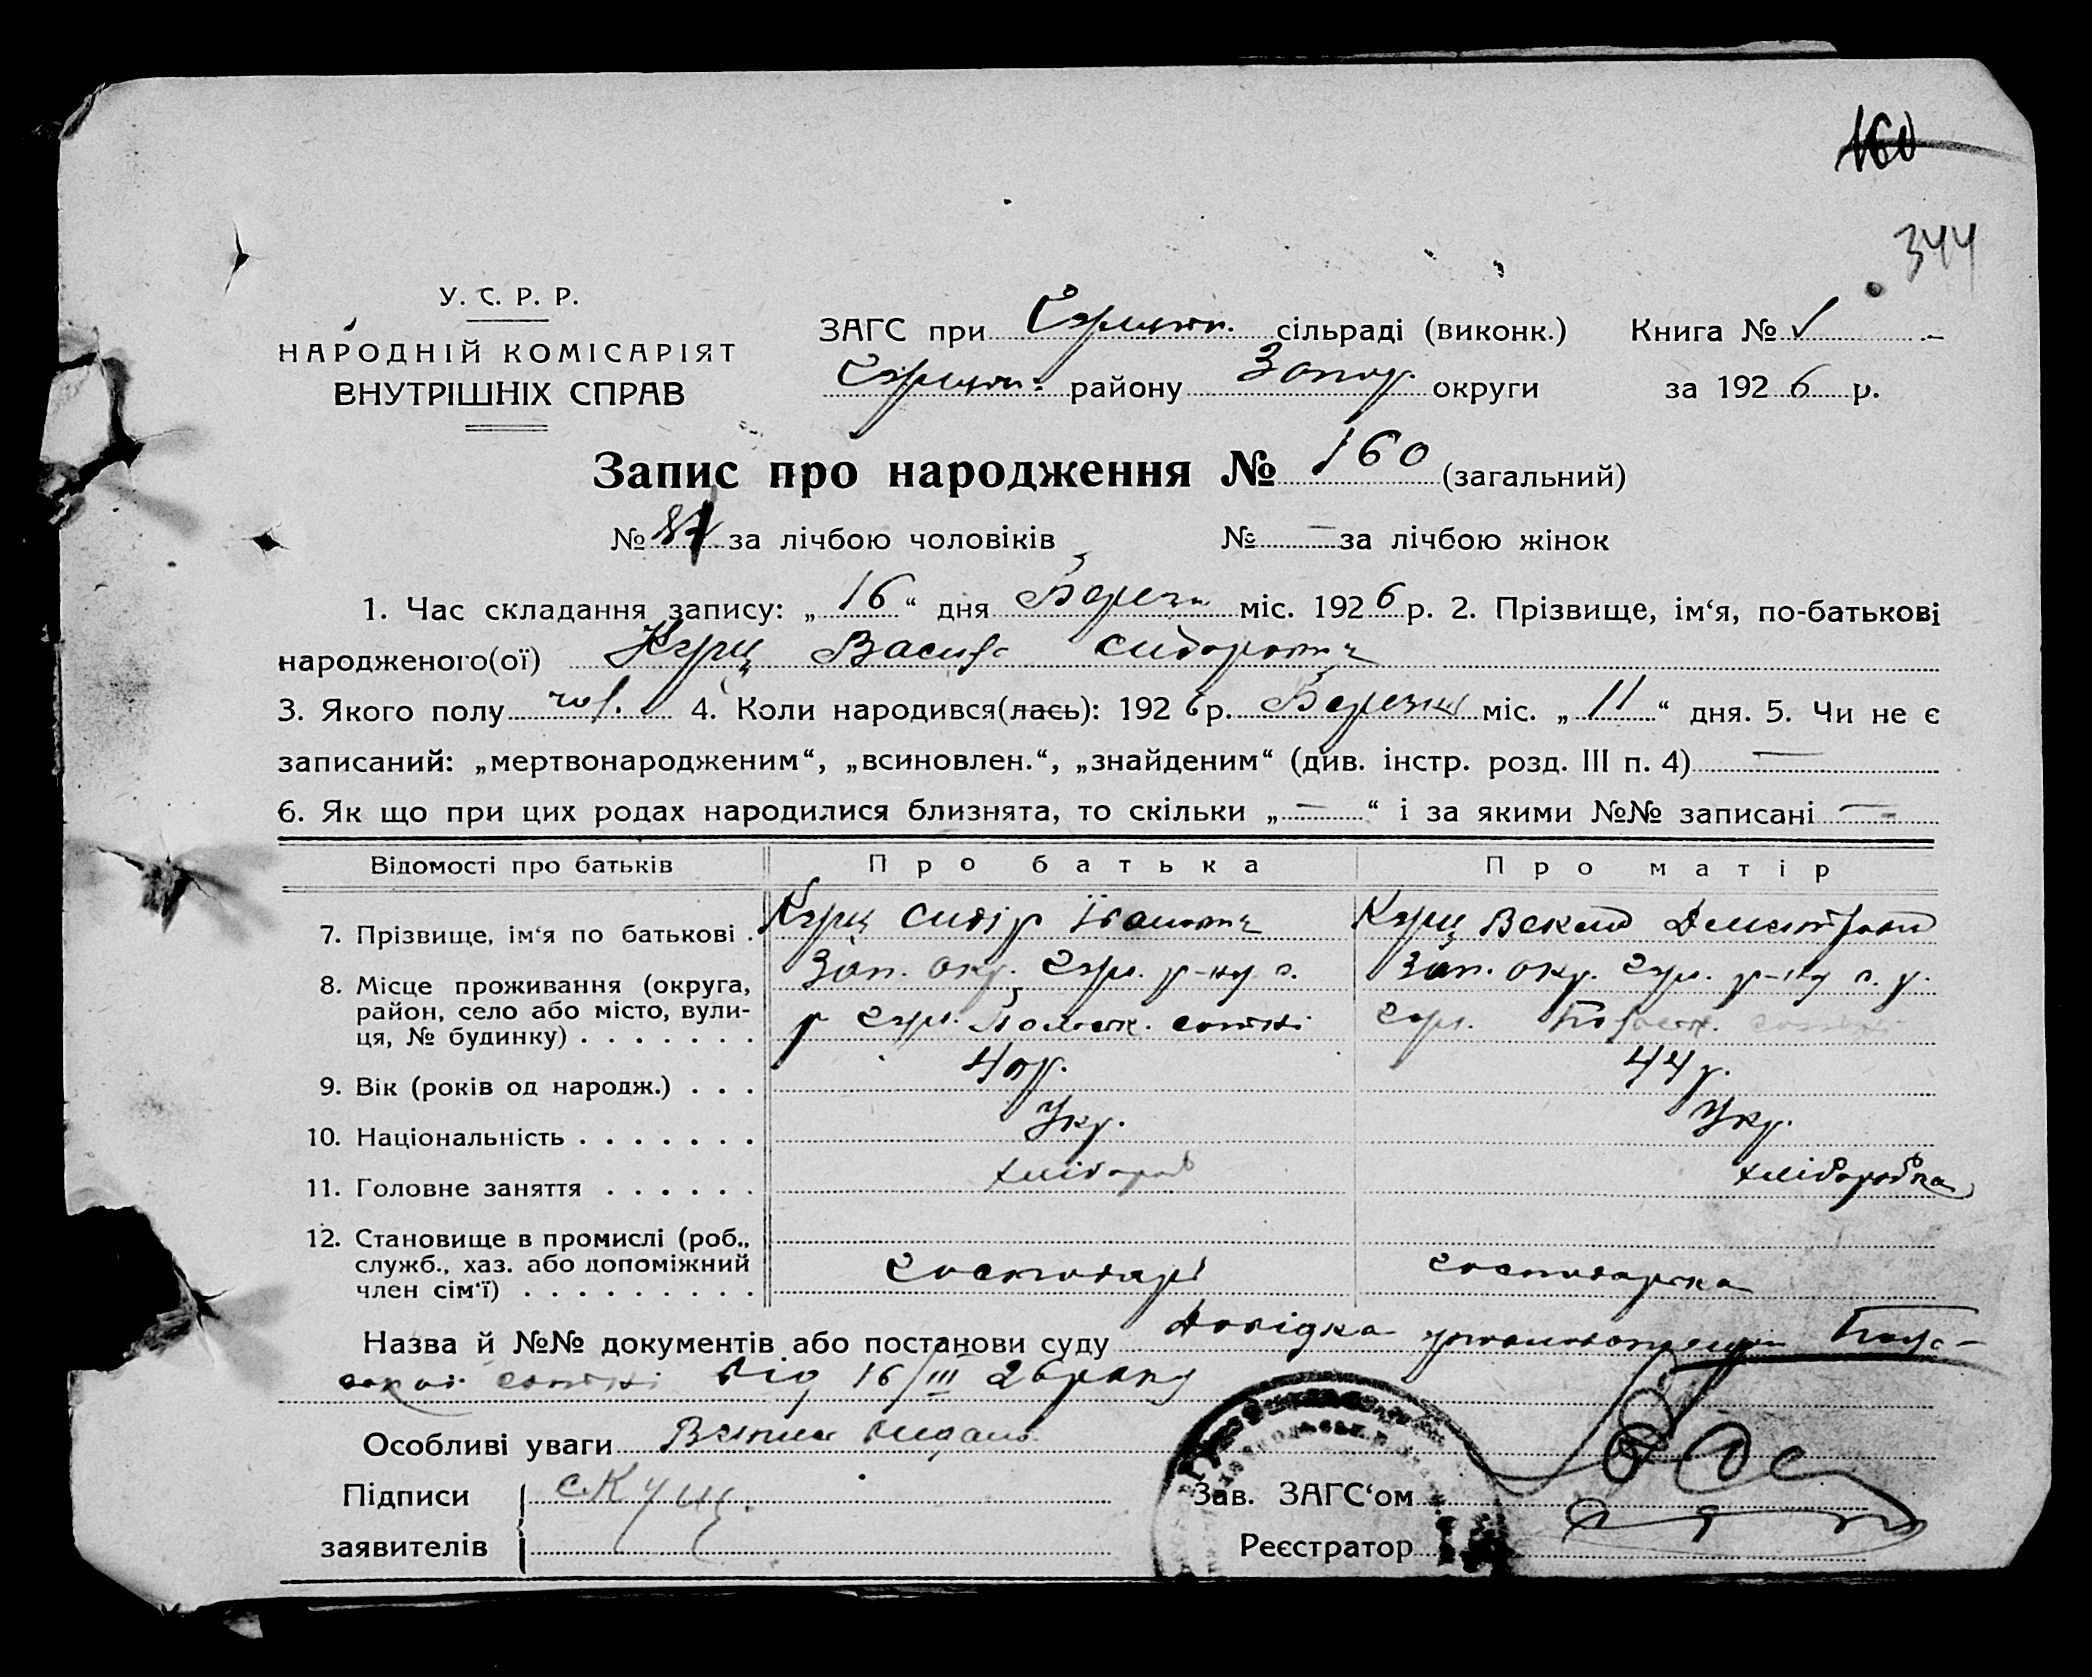 160
344
У. С. Р. Р.
НАРОДНІЙ КОМІСАРІЯТ
ВНУТРІШНІХ СПРАВ
ЗАГС при сільраді (виконк.) Книга №
району Запор. округи за 1926 р.
Запис про народження № 160 (загальний)
№ за лічбою чоловіків № — за лічбою жінок
1. Час складання запису: „16“ дня Березн міс. 1926 р. 2. Прізвище, ім‘я, по-батькові
народженого(ої) Кущ Василь Сидорович
3. Якого полу чол. 4. Коли народився(лась): 1926 р. Березня міс. „11“ дня. 5. Чи не є
записаний: „мертвонародженим“, „всиновлен.“, „знайденим“ (див. інстр. розд. III п. 4) —
6. Як що при цих родах народилися близнята, то скільки „—“ і за якими №№ записані —
Відомості про батьків Про батька Про матір
7. Прізвище, ім‘я по батькові . Кущ Сидір Іванович Кущ
8. Місце проживання (округа, Зап. окр. р-ну с. Зап. окр. р-ну с.
район, село або місто, вули-
ця, № будинку) . . . . . . . сотні
9. Вік (років од народж.) . . . 40р. 44р.
10. Національність . . . . . . . Укр. Укр.
11. Головне заняття . . . . . . хлібороб хліборобка
12. Становище в промислі (роб.,
служб., хаз. або допоміжний господарь господарка
член сім‘ї) . . . . . . . . .
Назва й №№ документів або постанови суду Довідка
сотні від 16/III 26 року
Особливі уваги Витяг видано
Підписи С. Кущ. Зав. ЗАГС‘ом
заявителів Реєстратор